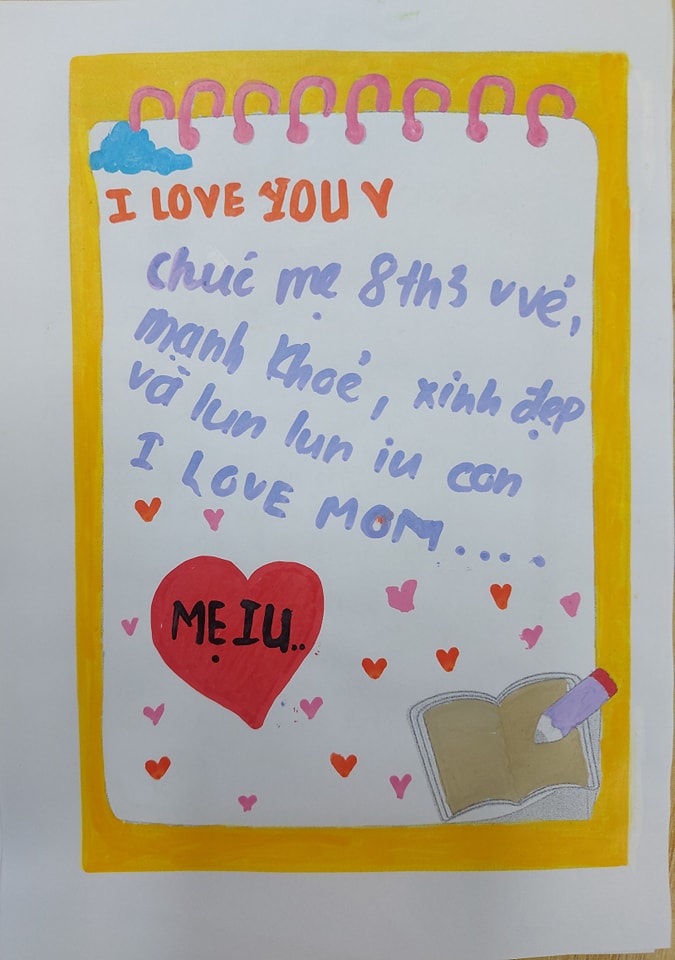 I LOVE YOU
chúc mẹ 8th3 vvẻ,
mạnh khoẻ, xinh đẹp
và lun lun iu con
I LOVE MOM....
MẸ IU..